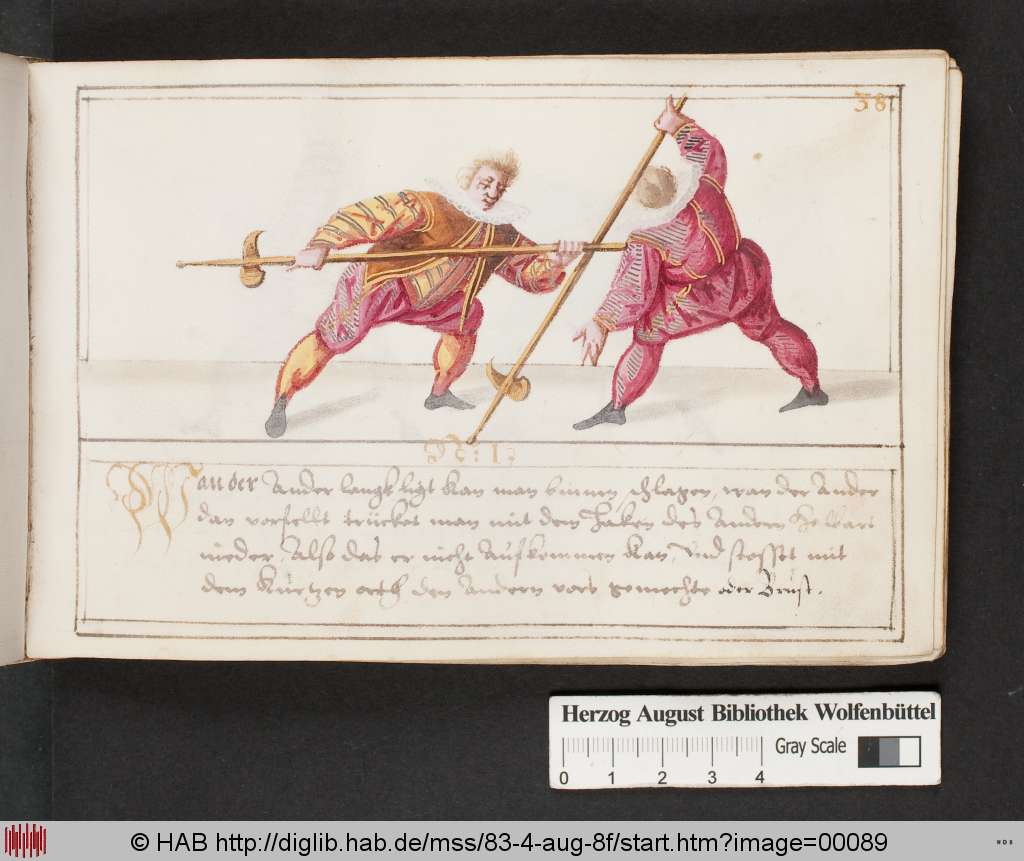 38.
No: 1:
Wan der Ander langk ligt kan man binnen schlagen, wan der Ander
dan vorfellt trücket man mit dem Haken des Andern Helbart
nieder, Also das er nicht Aufkommen kan, Und stosset mit
dem kürtzen orth den Andern vors gemechte oder Brust.
Herzog August Bibliothek Wolfenbüttel
Gray Scale
0 1 2 3 4
© HAB http://diglib.hab.de/mss/83-4-aug-8f/start.htm?image=00089